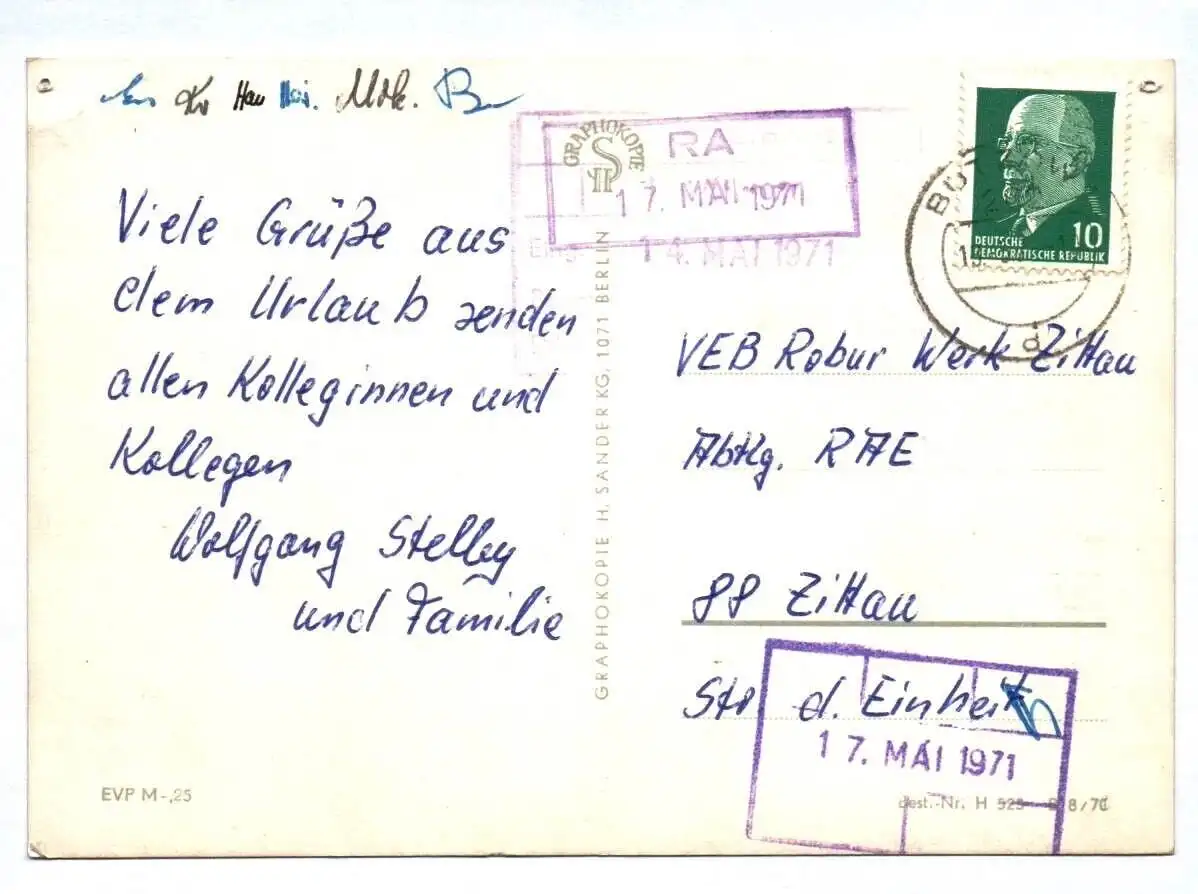 Hau Mök.
GRAPHOKOPIE
RA
17. MAI 1971
Eing.
14. MAI 1971
10
DEUTSCHE
DEMOKRATISCHE REPUBLIK
Viele Grüße aus
dem Urlaub senden
allen Kolleginnen und
Kollegen
Wolfgang Stelley
und Familie
GRAPHOKOPIE H. SANDER KG, 1071 BERLIN
VEB Robur Werk Zittau
Abtlg. RAE
88 Zittau
Str. d. Einheit
17. MAI 1971
EVP M -,25
Best.-Nr. H 525 8/70